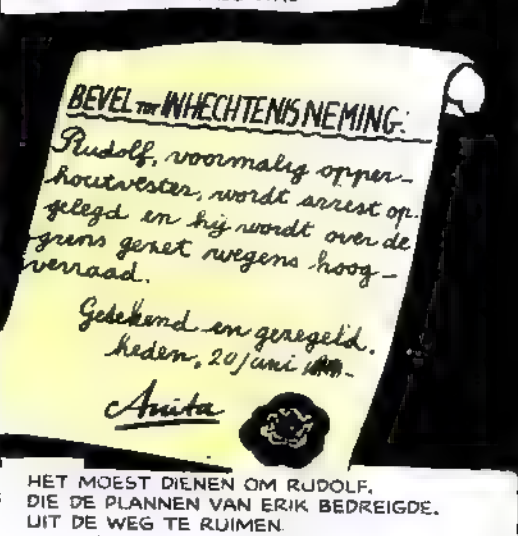 BEVEL TOT INHECHTENISNEMING:
Rudolf, voormalig opper-
houtvester, wordt arrest op-
gelegd en hij wordt over de
grens gezet wegens hoog-
verraad.
Getekend en gezegeld.
heden, 20 juni
Anita
HET MOEST DIENEN OM RUDOLF,
DIE DE PLANNEN VAN ERIK BEDREIGDE,
UIT DE WEG TE RUIMEN